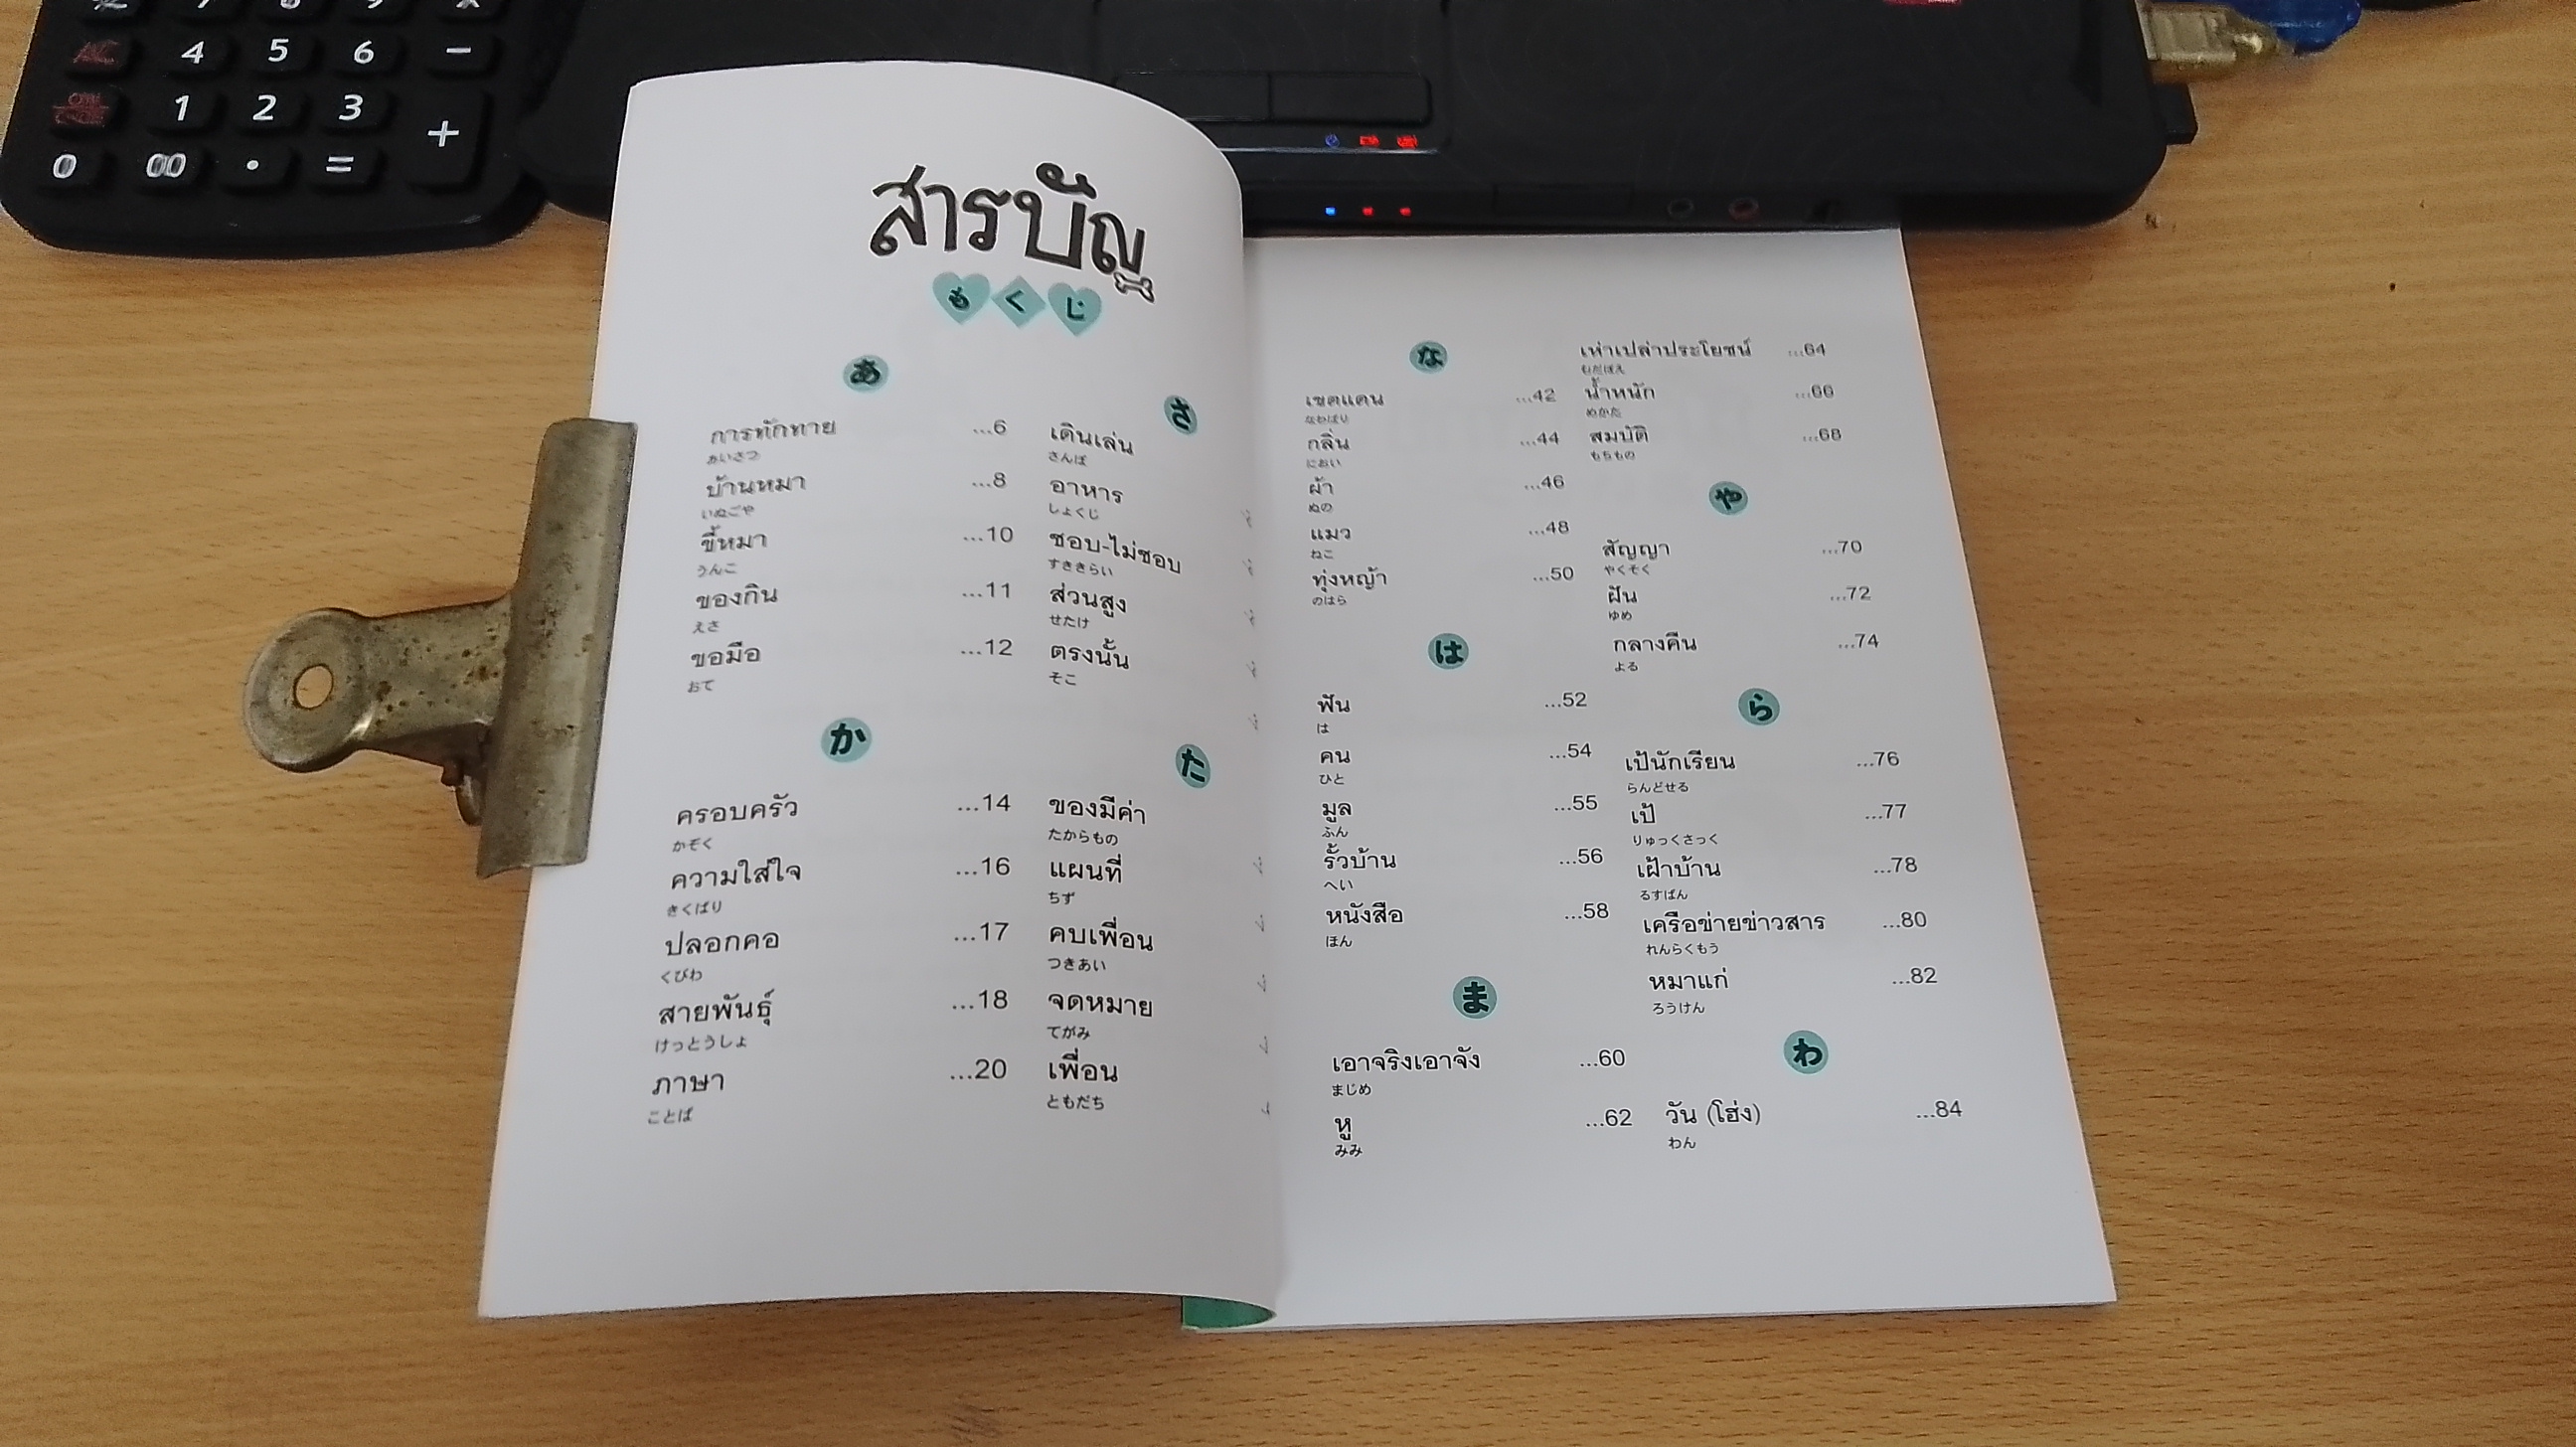 4 5 6 −
1 2 3
+
0 00 . =
สารบัญ
もくじ
あ
การทักทาย ...6
あいさつ
บ้านหมา ...8
いぬごや
ขี้หมา ...10
うんこ
ของกิน ...11
えさ
ขอมือ ...12
おて
か
ครอบครัว ...14
かぞく
ความใส่ใจ ...16
きくばり
ปลอกคอ ...17
くびわ
สายพันธุ์ ...18
けっとうしょ
ภาษา ...20
ことば
さ
เดินเล่น
さんぽ
อาหาร
しょくじ
ชอบ-ไม่ชอบ
すききらい
ส่วนสูง
せたけ
ตรงนั้น
そこ
た
ของมีค่า
たからもの
แผนที่
ちず
คบเพื่อน
つきあい
จดหมาย
てがみ
เพื่อน
ともだち
な
เขตแดน ...42
なわばり
กลิ่น ...44
におい
ผ้า ...46
ぬの
แมว ...48
ねこ
ทุ่งหญ้า ...50
のはら
は
ฟัน ...52
は
คน ...54
ひと
มูล ...55
ふん
รั้วบ้าน ...56
へい
หนังสือ ...58
ほん
ま
เอาจริงเอาจัง ...60
まじめ
หู ...62
みみ
เห่าเปล่าประโยชน์ ...64
むだぼえ
น้ำหนัก ...66
めかた
สมบัติ ...68
もちもの
や
สัญญา ...70
やくそく
ฝัน ...72
ゆめ
กลางคืน ...74
よる
ら
เป้นักเรียน ...76
らんどせる
เป้ ...77
りゅっくさっく
เฝ้าบ้าน ...78
るすばん
เครือข่ายข่าวสาร ...80
れんらくもう
หมาแก่ ...82
ろうけん
わ
วัน (โฮ่ง) ...84
わん